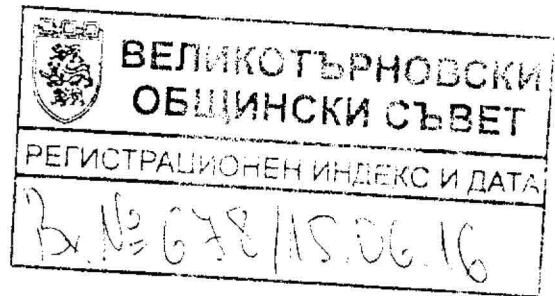 ВЕЛИКОТЪРНОВСКИ
ОБЩИНСКИ СЪВЕТ
РЕГИСТРАЦИОНЕН ИНДЕКС И ДАТА
Вх. № 678/15.06.16